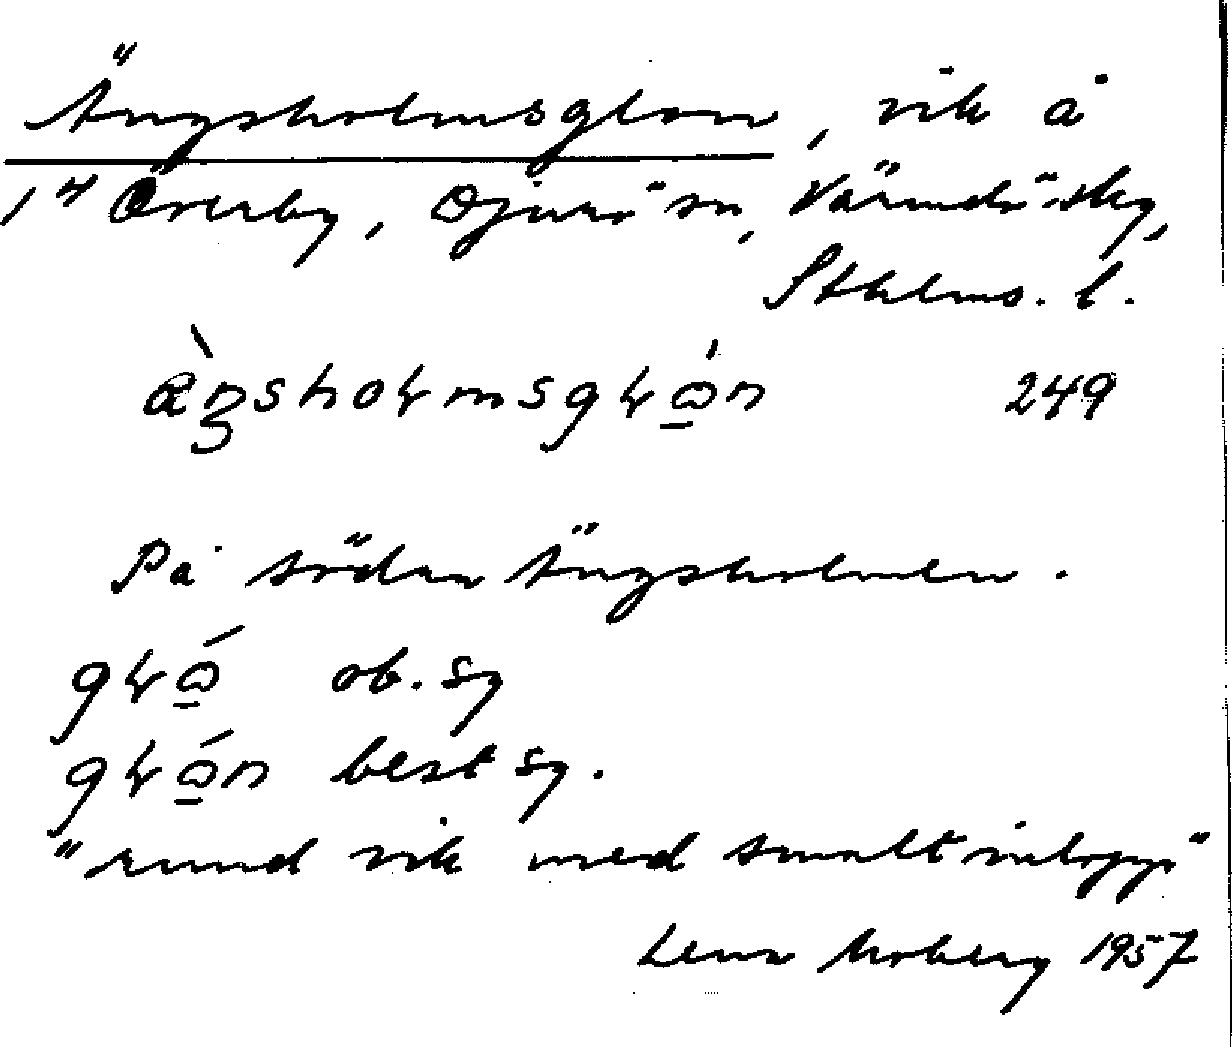 Ängsholmsglon, vik å
1⁴ Överby, Djurö sn, Värmdö skg,
Sthlms. l.
249
På södra Ängsholmen.
ob. sg
best sg.
"rund vik med smalt inlopp"
Lena Moberg 1957